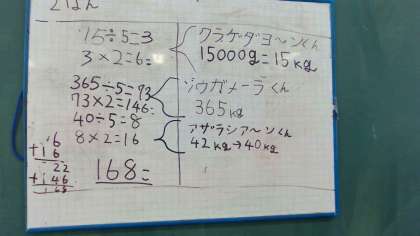 15÷5=3
3×2=6
365÷5=73
73×2=146
40÷5=8
8×2=16
6
+16
22
+146
168
168
クラゲダヨ〜ンくん
15000g=15kg
ゾウガメーラくん
365kg
アザラシア〜ンくん
42kg→40kg